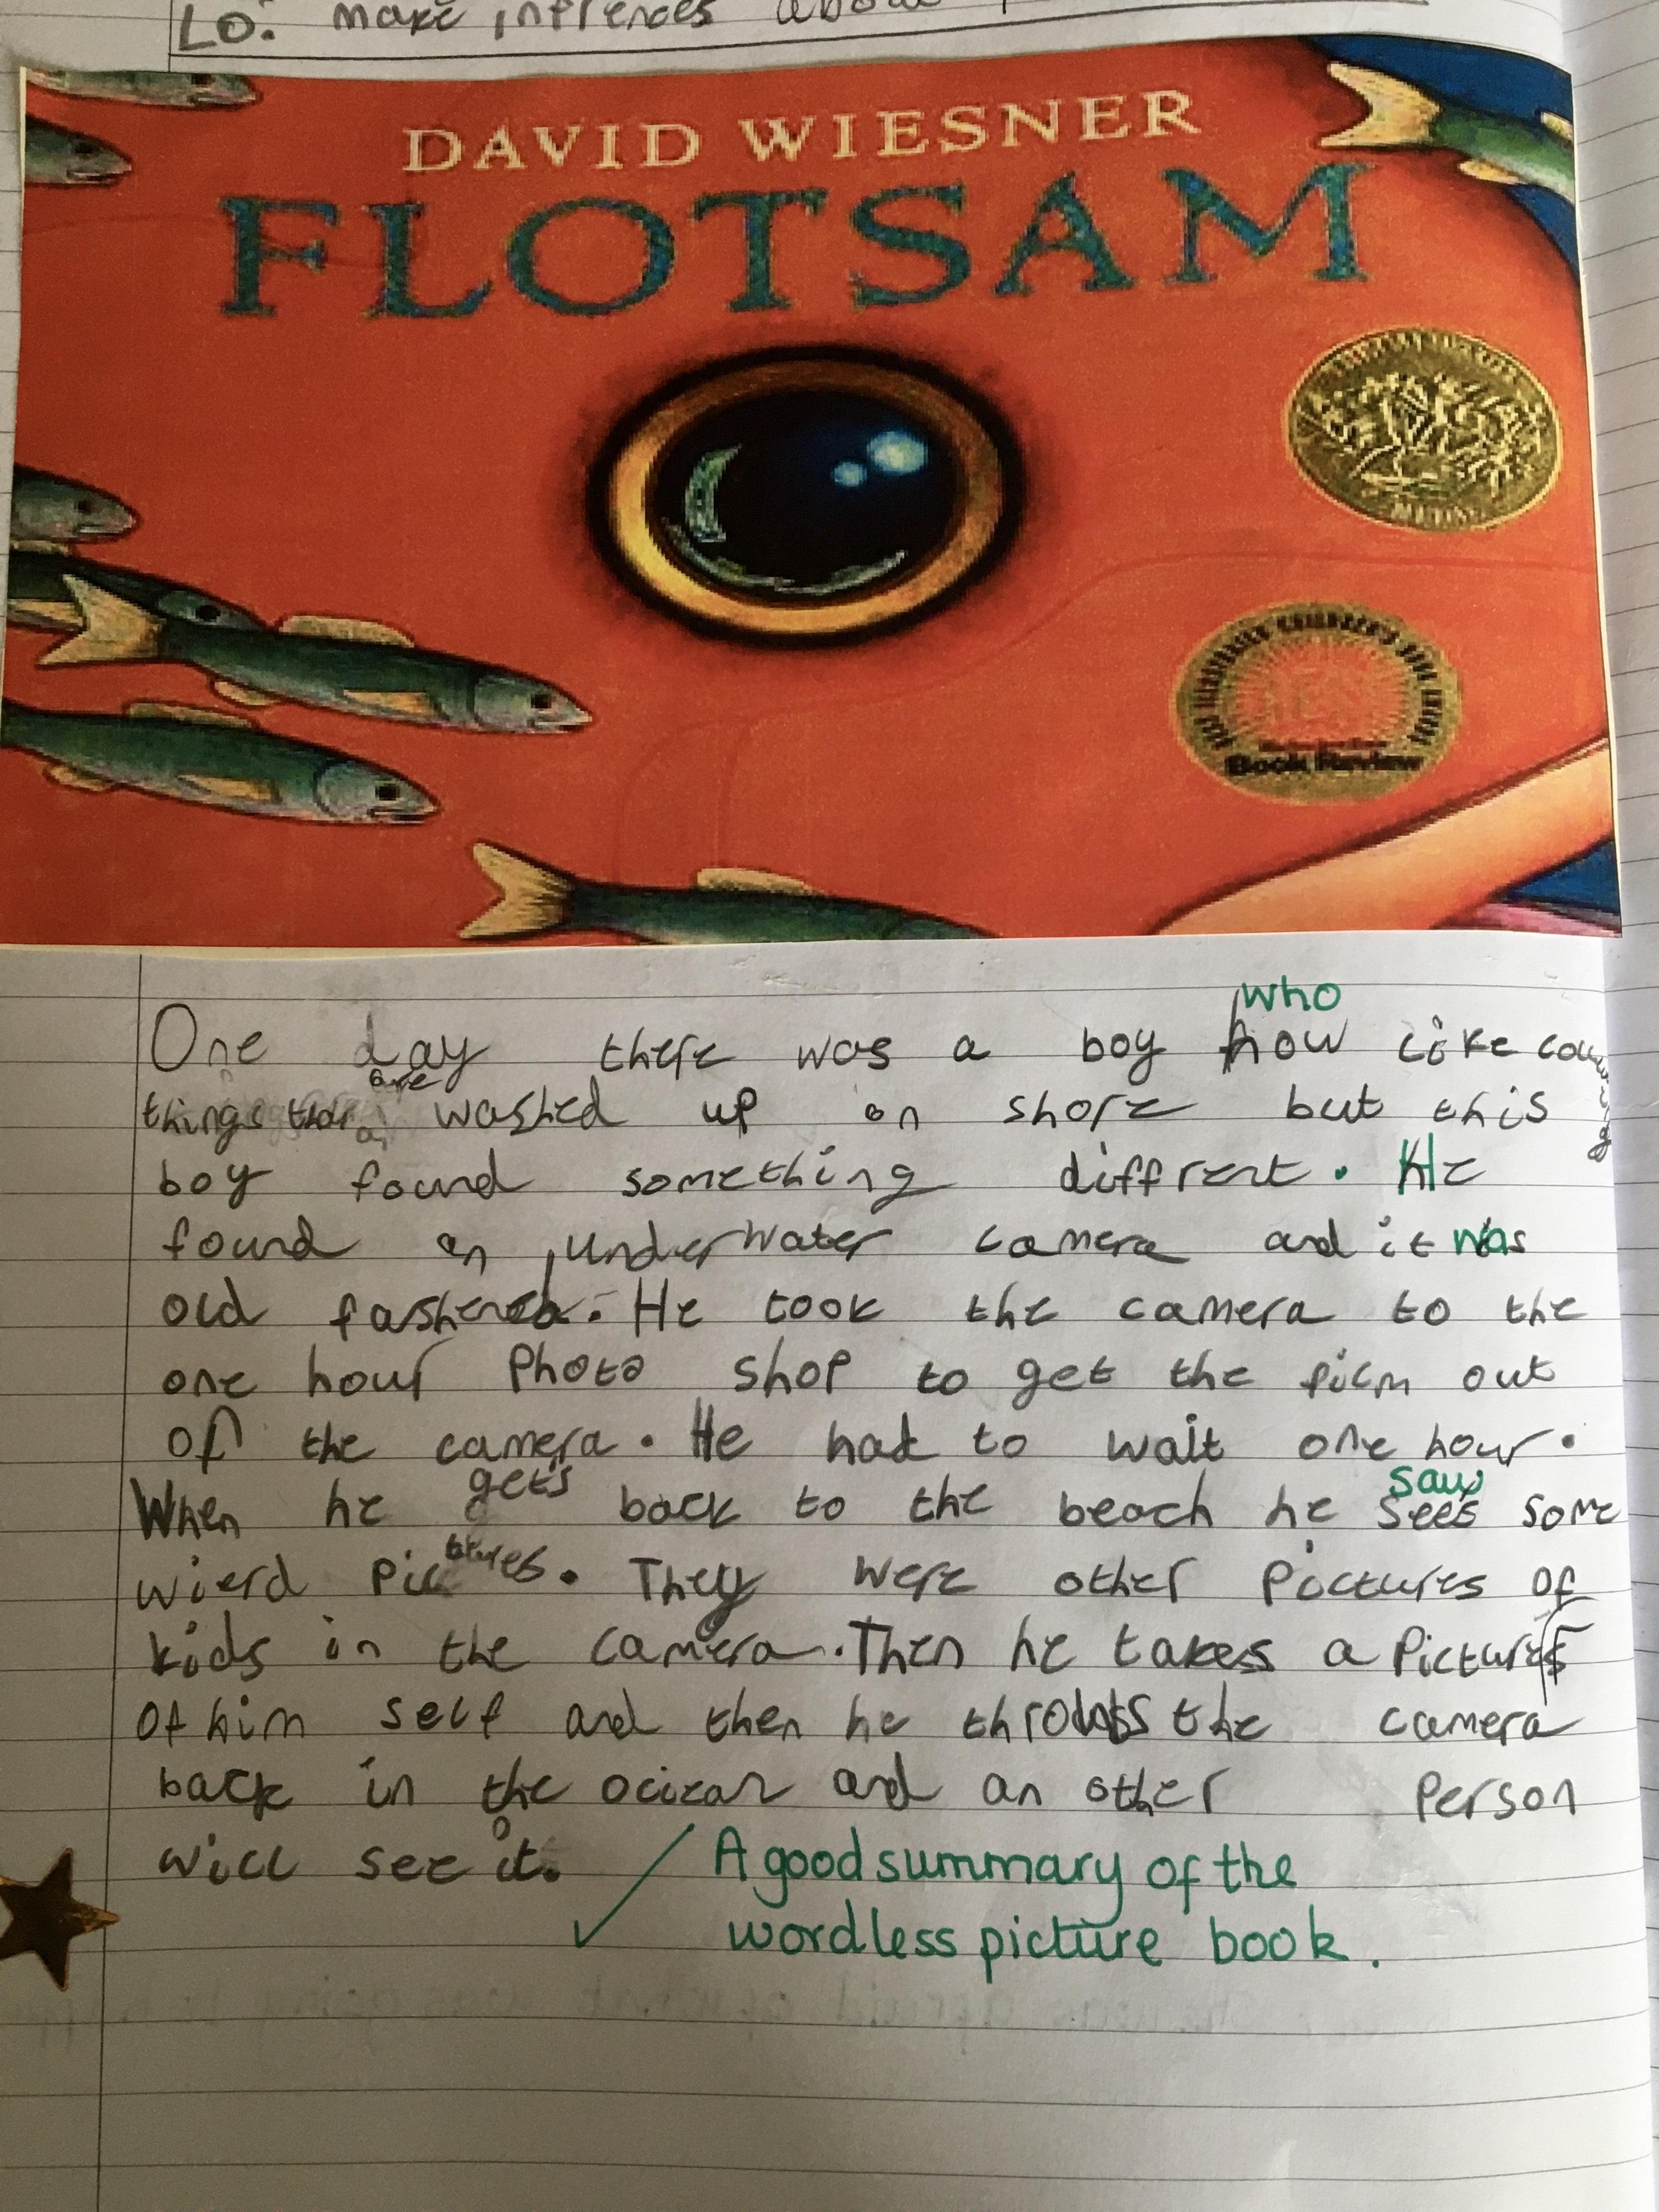 LO: make infrences about
DAVID WIESNER
FLOTSAM
MEDAL
Book Review
who
One day there was a boy how like
are
things that washed up on shore but this
boy found something diffrent. He
found an underwater camera and it was
old fashened. He took the camera to the
one hour Photo shop to get the film out
of the camera. He had to wait one hour.
gets saw
When he back to the beach he sees some
wierd pictures. They were other Pictures of
kids in the camera. Then he takes a Picture
of him self and then he throws the camera
back in the ocizan and an other Person
will see it.
A good summary of the
wordless picture book.